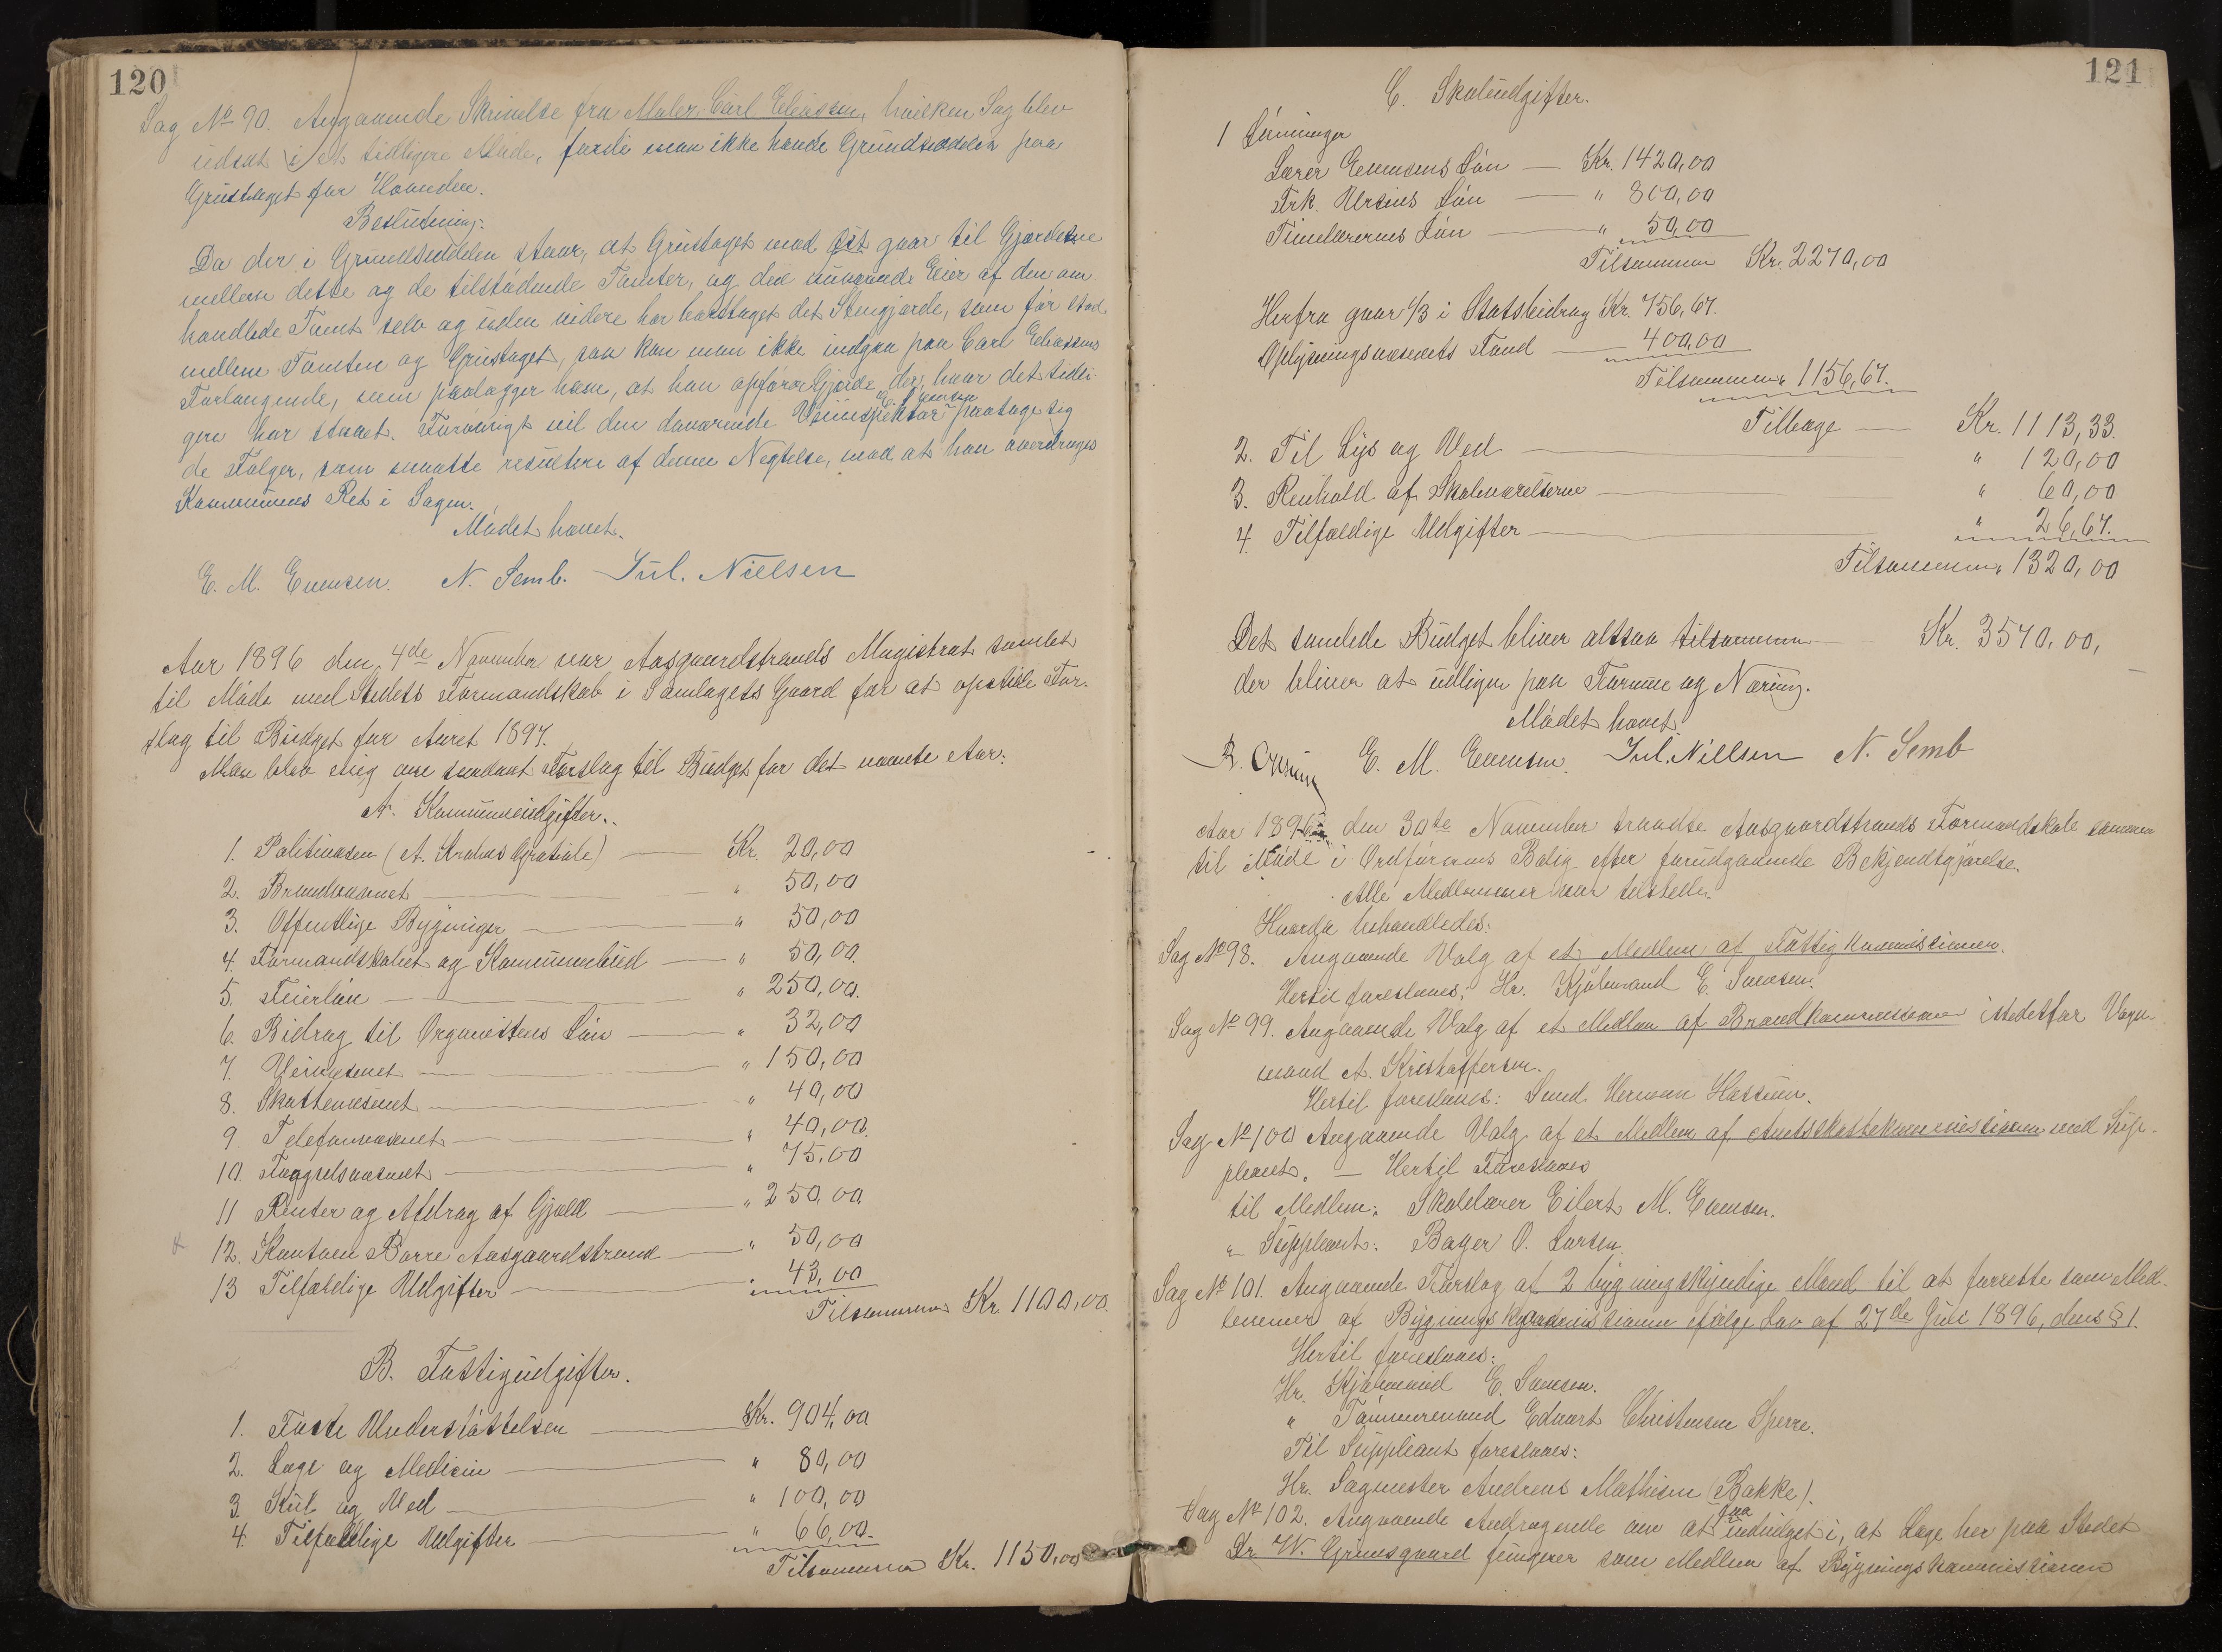 120
Sag No 90. Angaaende Skrivelse fra Maler Carl Eliassen, hvilken Sag blev
udsat i et tidligere Møde, fordi man ikke havde Grundseddelen paa
Grustaget for Haanden.
Beslutning:
Da der i Grundseddelen staar, at Grustaget med Ret gaar til Gjærderne
mellem dette og de tilstødende Tomter, og den nuværende Eier af den om-
handlede Tomt selv og uden videre har borttaget det Stengjærde, som før stod
mellem Tomten og Grustaget, saa kan man ikke indgaa paa Carl Eliassens
Forlangende, men paalægger ham, at han opfører Gjærde der, hvor det tidli-
gere har staaet. Forøvrigt vil den daværende Veiinspektør paatage sig
de Følger, som maatte resultere af denne Negtelse, mod at han overdrages
Kommunens Ret i Sagen.
Mødet hævet.
E. M. Evensen. N. Semb. Jul. Nielsen
Aar 1896 den 4de November var Aasgaardstrands Magistrat samlet
til Møde med Stedets Formandskab i Samlagets Gaard for at opstille For-
slag til Budget for Aaret 1897.
Man blev enig om saadant Forslag til Budget for det nævnte Aar:
A. Kommuneudgifter.
1. Politivæsen (A. Gratiale) Kr. 20,00
2. Brandvæsenet " 50,00
3. Offentlige Bygninger " 50,00
4. Formandskabet og Kommunebud " 50,00.
5. Feierløn " 250,00.
6. Bidrag til Organistens Løn " 32,00
7. Veivæsenet " 150,00
8. Skattevæsenet " 40,00
9. Telefonvæsenet " 40,00.
10. Fængselsvæsenet " 75,00
11 Renter og Afdrag af Gjæld " 250,00
12. Borre Aasgaardstrand " 50,00
13 Tilfældige Udgifter " 43,00
Tilsammen Kr 1100,00.
B. Fattigudgifter.
1. Faste Understøttelser Kr. 904,00
2. Læge og Medicin " 80,00
3. Kul og Ved " 100,00
4. Tilfældige Udgifter " 66,00.
Tilsammen Kr. 1150,00
121
C. Skoleudgifter.
1 Lønninger
Lærer Evensens Løn Kr. 1420,00
Frk. Ursins Løn " 800,00
Timelærernes Løn " 50,00
Tilsammen Kr. 2270,00
Herfra gaar 1/3 i Statsbidrag Kr. 756,67.
Oplysningsvæsenets Fond 400,00
Tilsammen " 1156,67.
Tilbage Kr. 1113,33.
2. Til Lys og Ved " 120,00
3. Renhold af Skoleværelserne " 60,00
4. Tilfældige Udgifter " 26,67.
Tilsammen " 1320,00
Det samlede Budget bliver altsaa tilsammen Kr. 3570,00,
der bliver at udligne paa Formue og Næring.
Mødet hævet
E. M. Evensen. Jul. Nielsen N. Semb
Aar 1896 den 30te November traadte Aasgaardstrands Formandskab sammen
til Møde i Ordførerens Bolig efter forudgaaende Bekjendtgjørelse.
Alle Medlemmer var tilstede.
Hvorda behandledes:
Sag No 98. Angaaende Valg af et Medlem af Fattigkommissionen.
Hertil foresloaes: Hr. Kjøbmand E. Svensen.
Sag No 99. Angaaende Valg af et Medlem af Brandkommissionen istedetfor Vogn-
mand A. Kristoffersen.
Hertil foreslaaes: Smed Herman Hassum.
Sag No 100 Angaaende Valg af et Medlem af Amtsskattekommissionen med Sup-
pleant. – Hertil Foreslaaes
til Medlem: Skolelærer Eilert M. Evensen.
" Suppleant: Bager O. Larsen.
Sag No 101. Angaaende Forslag af 2 bygningskyndige Mænd til at forrette som Med-
lemmer af Bygningskommissionen ifølge Lov af 27de Juli 1896, dens § 1.
Hertil foreslaaes:
Hr. Kjøbmand E. Svensen.
" Tømmermand Edvart Christensen Sperre.
Til Suppleant foreslaaes:
Hr. Sagmester Andreas Mathisen (Bakke).
Sag No 102. Angaaende Andragende om at faa indvilget i, at Læge her paa Stedet
Dr. W. Grimsgaard fungerer som Medlem af Bygningskommissionen